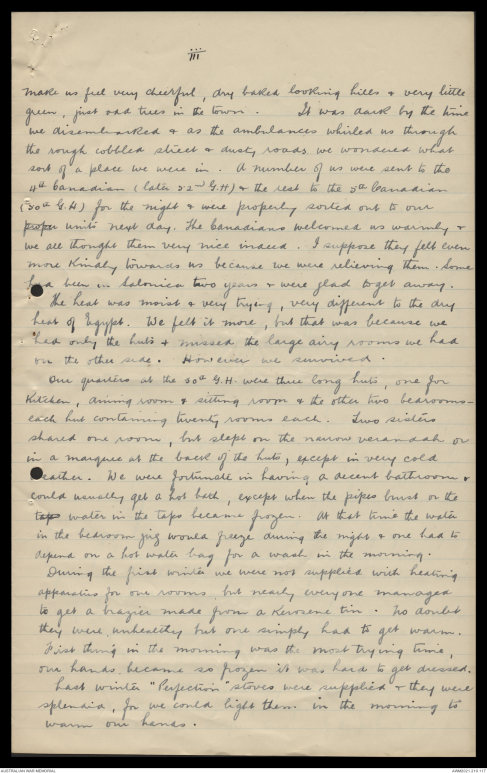 iii
make us feel very cheerful, dry baked looking hills & very little
green, just odd trees in the town. It was dark by the time
we disembarked & as the ambulances whirled us through
the rough cobbled street & dusty roads, we wondered what
sort of a place we were in. A number of us were sent to the
4th Canadian (later 52nd G.H) & the rest to the 5th Canadian
(50th G.H) for the night & were properly sorted out to our
proper units next day. The Canadians welcomed us warmly &
we all thought them very nice indeed. I suppose they felt even
more kindly towards us because we were relieving them. Some
had been in Salonica two years & were glad to get away.
The heat was moist & very trying, very different to the dry
heat of Egypt. We felt it more, but that was because we
had only the huts & missed the large airy rooms we had
on the other side. However we survived.
Our quarters at the 50th G.H. were three long huts, one for
Kitchen, dining room & sitting room & the other two bedrooms –
each hut containing twenty rooms each. Two sisters
shared one room, but slept on the narrow verandah or
in a marquee at the back of the huts, except in very cold
weather. We were fortunate in having a decent bathroom &
could usually get a hot bath, except when the pipes burst or the
taps water in the taps became frozen. At that time the water
in the bedroom jug would freeze during the night & one had to
depend on a hot water bag for a wash in the morning.
During the first winter we were not supplied with heating
apparatus for our rooms, but nearly everyone managed
to get a brazier made from a kerosene tin. No doubt
they were unhealthy but one simply had to get warm.
First thing in the morning was the most trying time,
our hands became so frozen it was hard to get dressed.
Last winter "Perfection" stoves were supplied & they were
splendid, for we could light them in the morning to
warm our hands.
AUSTRALIAN WAR MEMORIAL